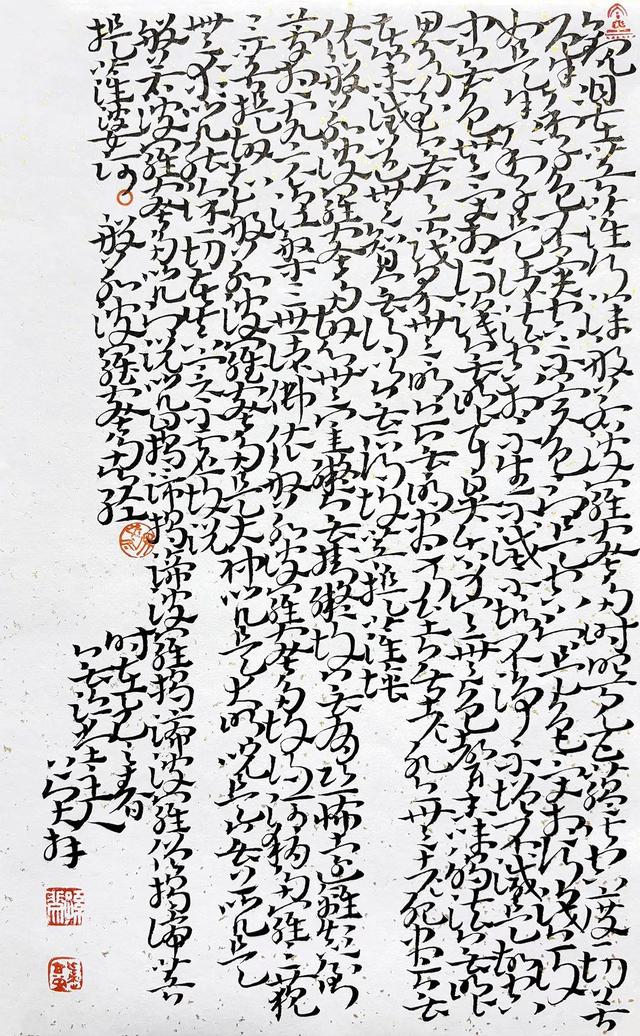 觀自在菩薩行深般若波羅蜜多時照見五蘊皆空度一切苦
厄舍利子色不異空空不異色色即是空空即是色受想行識亦復
如是舍利子是諸法空相不生不滅不垢不淨不增不減是故空
中無色無受想行識無眼耳鼻舌身意無色聲香味觸法無眼
界乃至無意識界無無明亦無無明盡乃至無老死亦無老死盡無苦
集滅道無智亦無得以無所得故菩提薩埵
依般若波羅蜜多故心無罣礙無罣礙故無有恐怖遠離顛倒
夢想究竟涅槃三世諸佛依般若波羅蜜多故得阿耨多羅三藐
三菩提故知般若波羅蜜多是大神咒是大明咒是無上咒是
無等等咒能除一切苦真實不虛故說
般若波羅蜜多咒即說咒曰揭諦揭諦波羅揭諦波羅僧揭諦菩
提薩婆訶 般若波羅蜜多心經
時在春